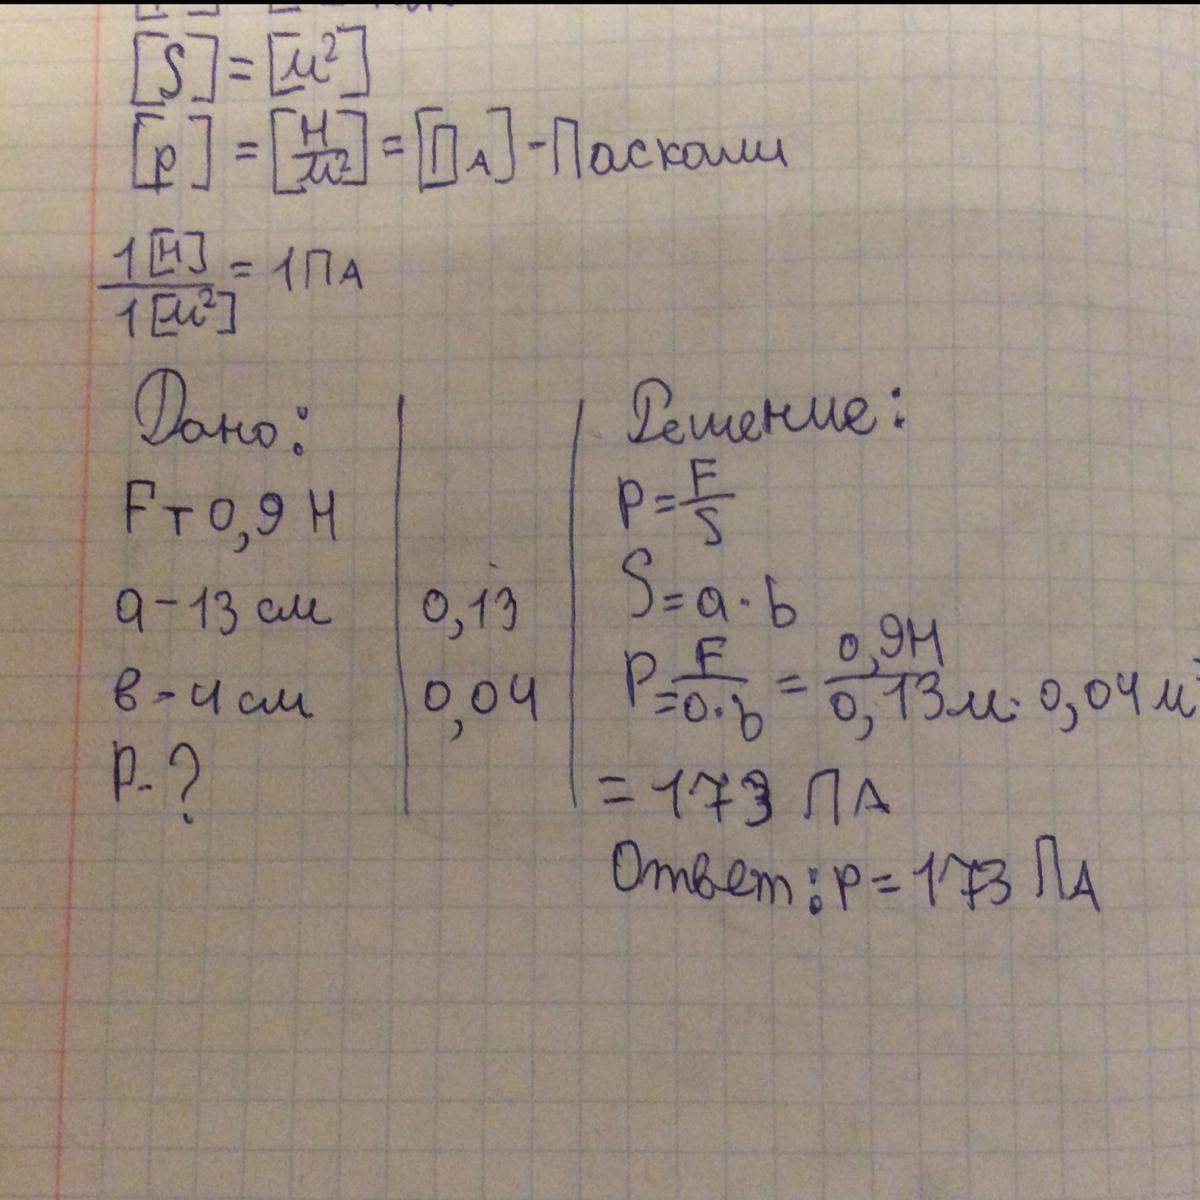 [S] = [м²]
[p] = [Н/м²] = [ПА] - Паскали
1[Н]/1[м²] = 1 ПА
Дано:
Fт 0,9 Н
а - 13 см 0,13
в - 4 см 0,04
P - ?
Решение:
P = F/S
S = a · b
P = F/a·b = 0,9Н/0,13м · 0,04м
= 173 ПА
Ответ: p = 173 ПА